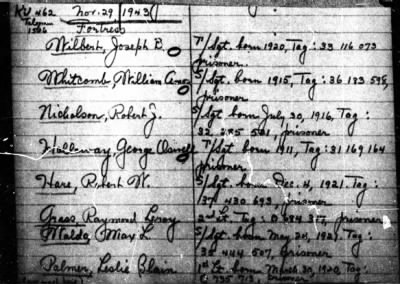 KU 462 Nov. 29 1943
Telegram 1566 Fortress
Wilbert, Joseph B. T/Sgt. born 1920, Tag: 33 116 073
prisoner.
Whitcomb, William S/Sgt. born 1915, Tag: 36 183 598,
prisoner
Nicholson, Robert J. S/Sgt born July 30, 1916, Tag:
32 285 521, prisoner
Halloway George T/Sgt born 1911, Tag: 31 169 164
prisoner
Hare, Robert W. S/Sgt. born Dec. 4, 1921. Tag:
37 430 693, prisoner
Raymond Leroy 2nd Lt. Tag: O 684 317, prisoner
Maldo, Max L. S/Sgt. born May 24, 1921. Tag:
35 444 507, prisoner
Palmer, Leslie Blain 1st Lt. born March 30, 1920, Tag:
O 735 713, prisoner